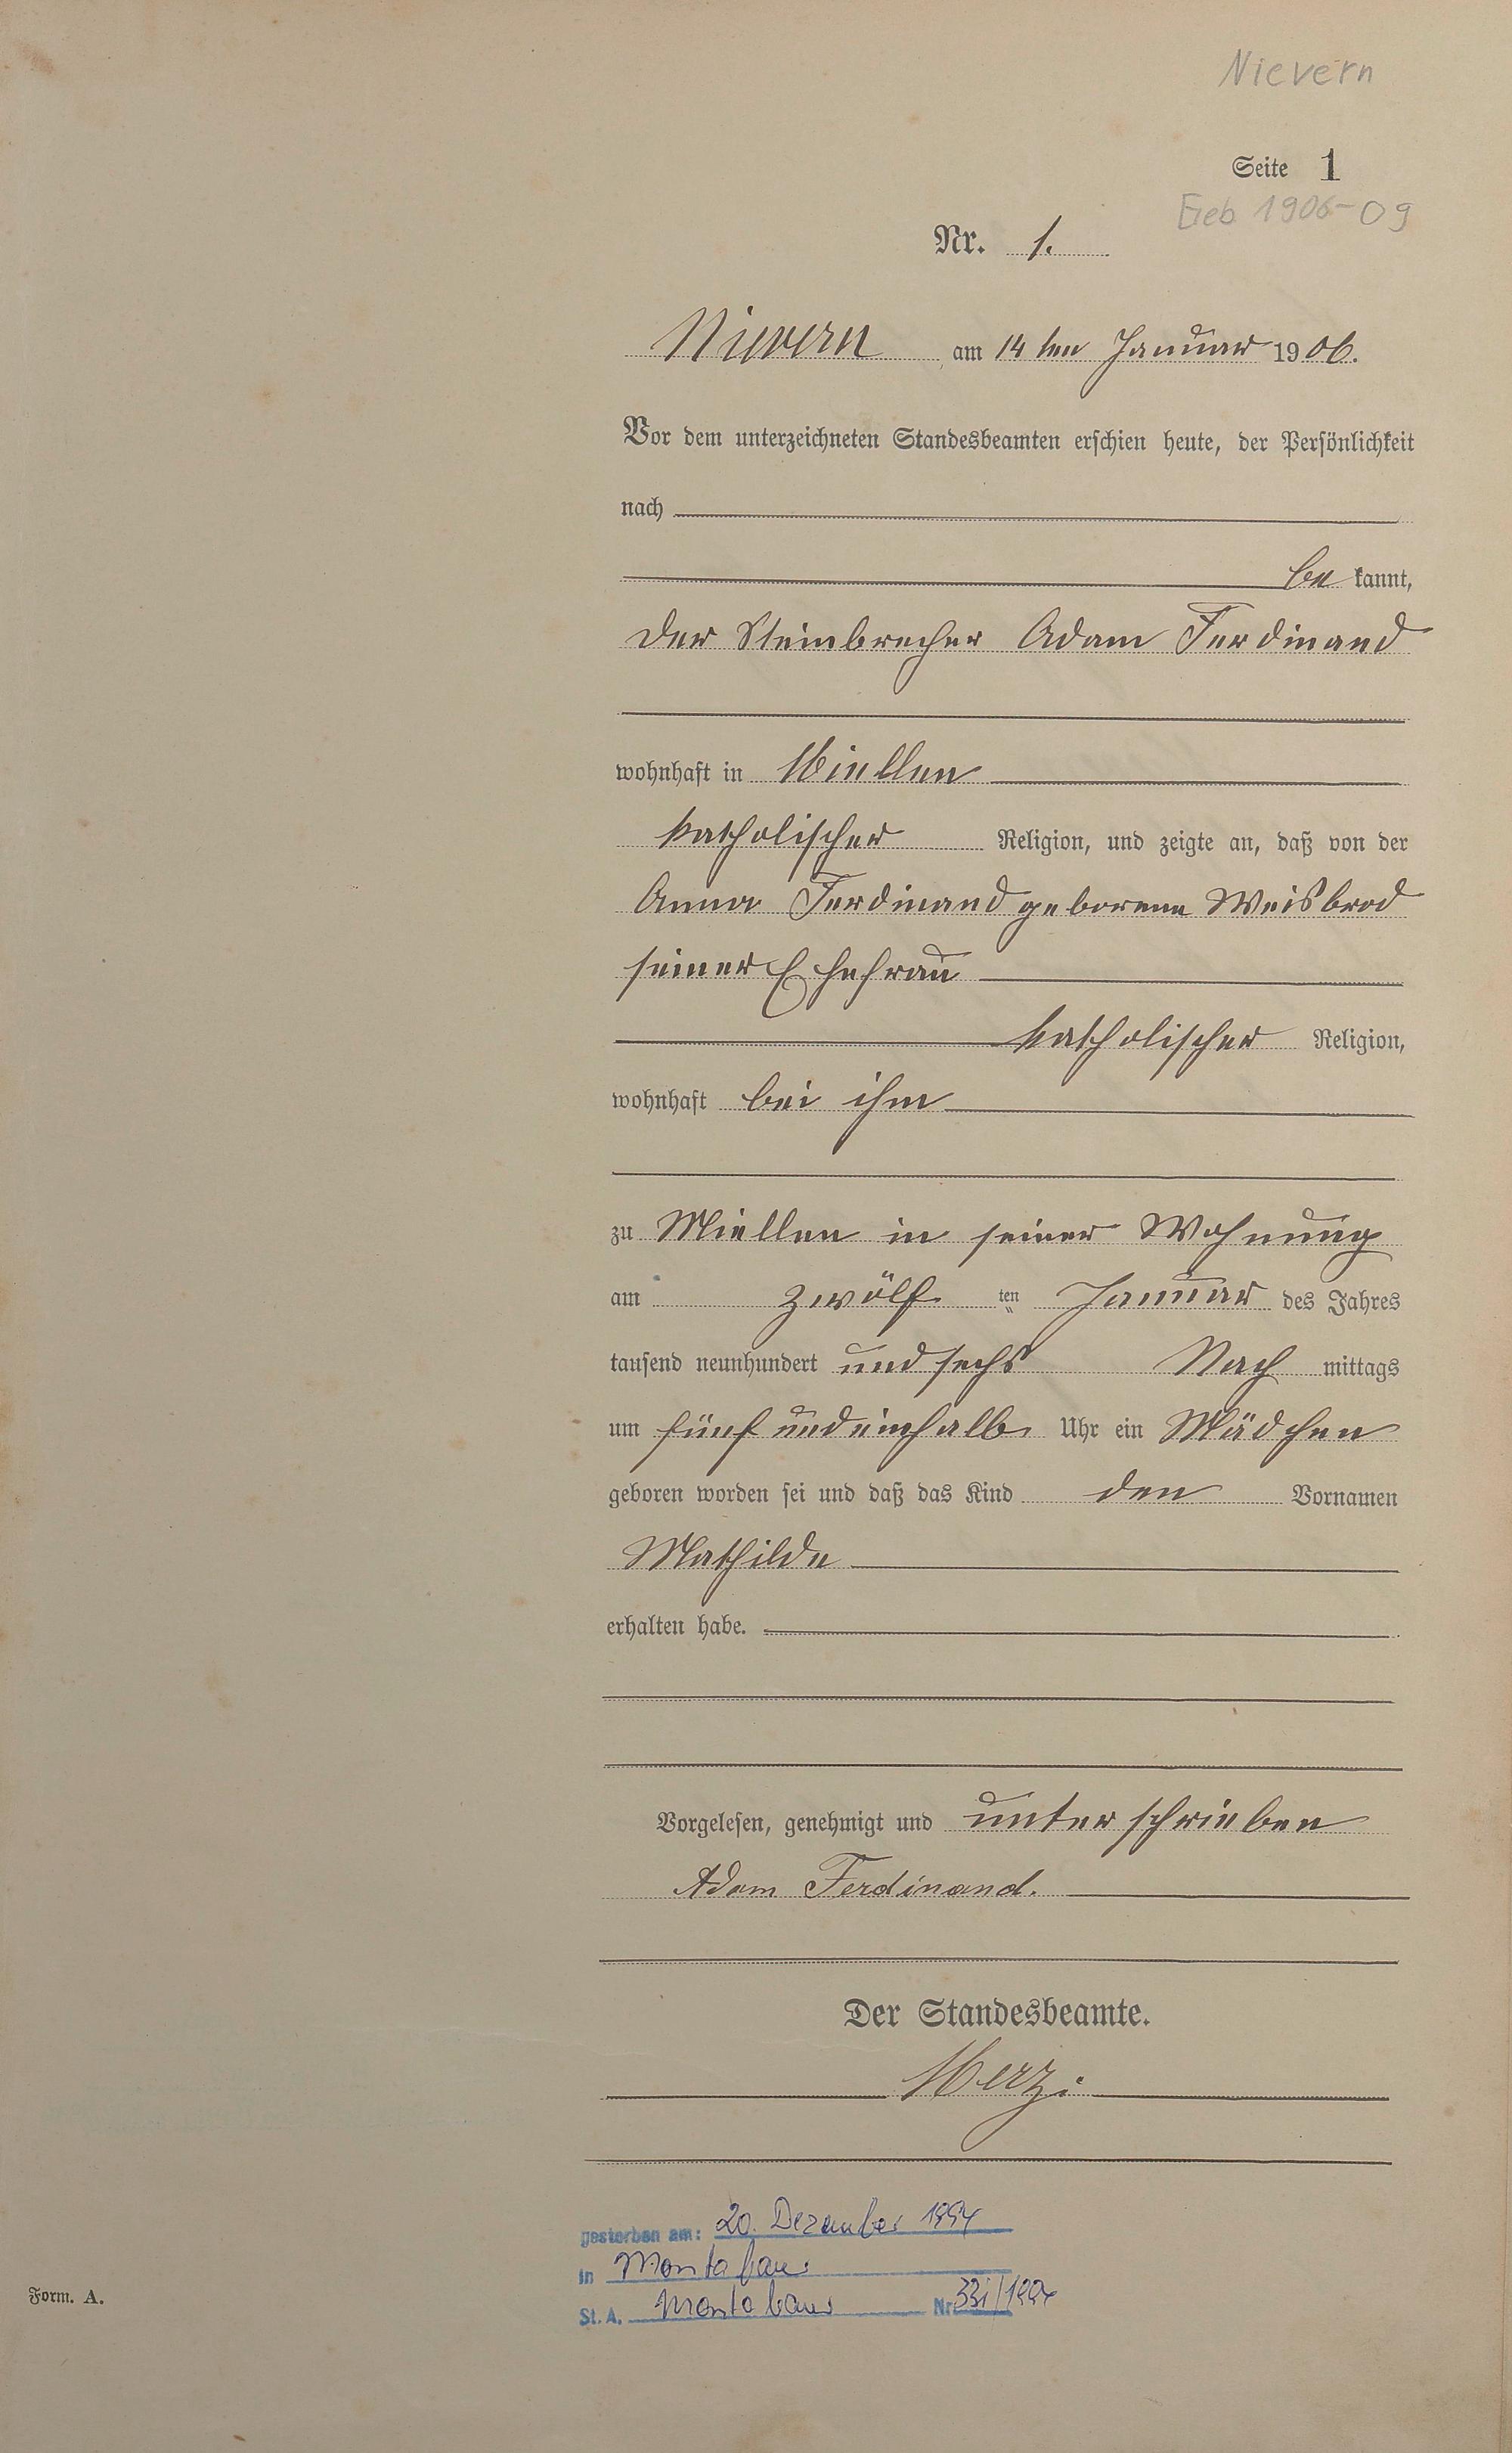 Nievern
Seite 1
Geb 1906-09
Nr. 1.
Nievern am 14 ten Januar 1906.
Vor dem unterzeichneten Standesbeamten erschien heute, der Persönlichkeit
nach
be kannt,
der Steinbrecher Adam Ferdinand
wohnhaft in Miellen
katholischer Religion, und zeigte an, daß von der
Anna Ferdinand geborene Weisbrod
seiner Ehefrau
katholischer Religion,
wohnhaft bei ihm
zu Miellen in seiner Wohnung
am zwölf ten Januar des Jahres
tausend neunhundert und sechs Nach mittags
um fünf und einhalb Uhr ein Mädchen
geboren worden sei und daß das Kind den Vornamen
Mathilde
erhalten habe.
Vorgelesen, genehmigt und unterschrieben
Adam Ferdinand.
Der Standesbeamte.
Merz.
gestorben am: 20. Dezember 1994
in Montabaur
St. A. Montabaur Nr. 331/1994
Form. A.